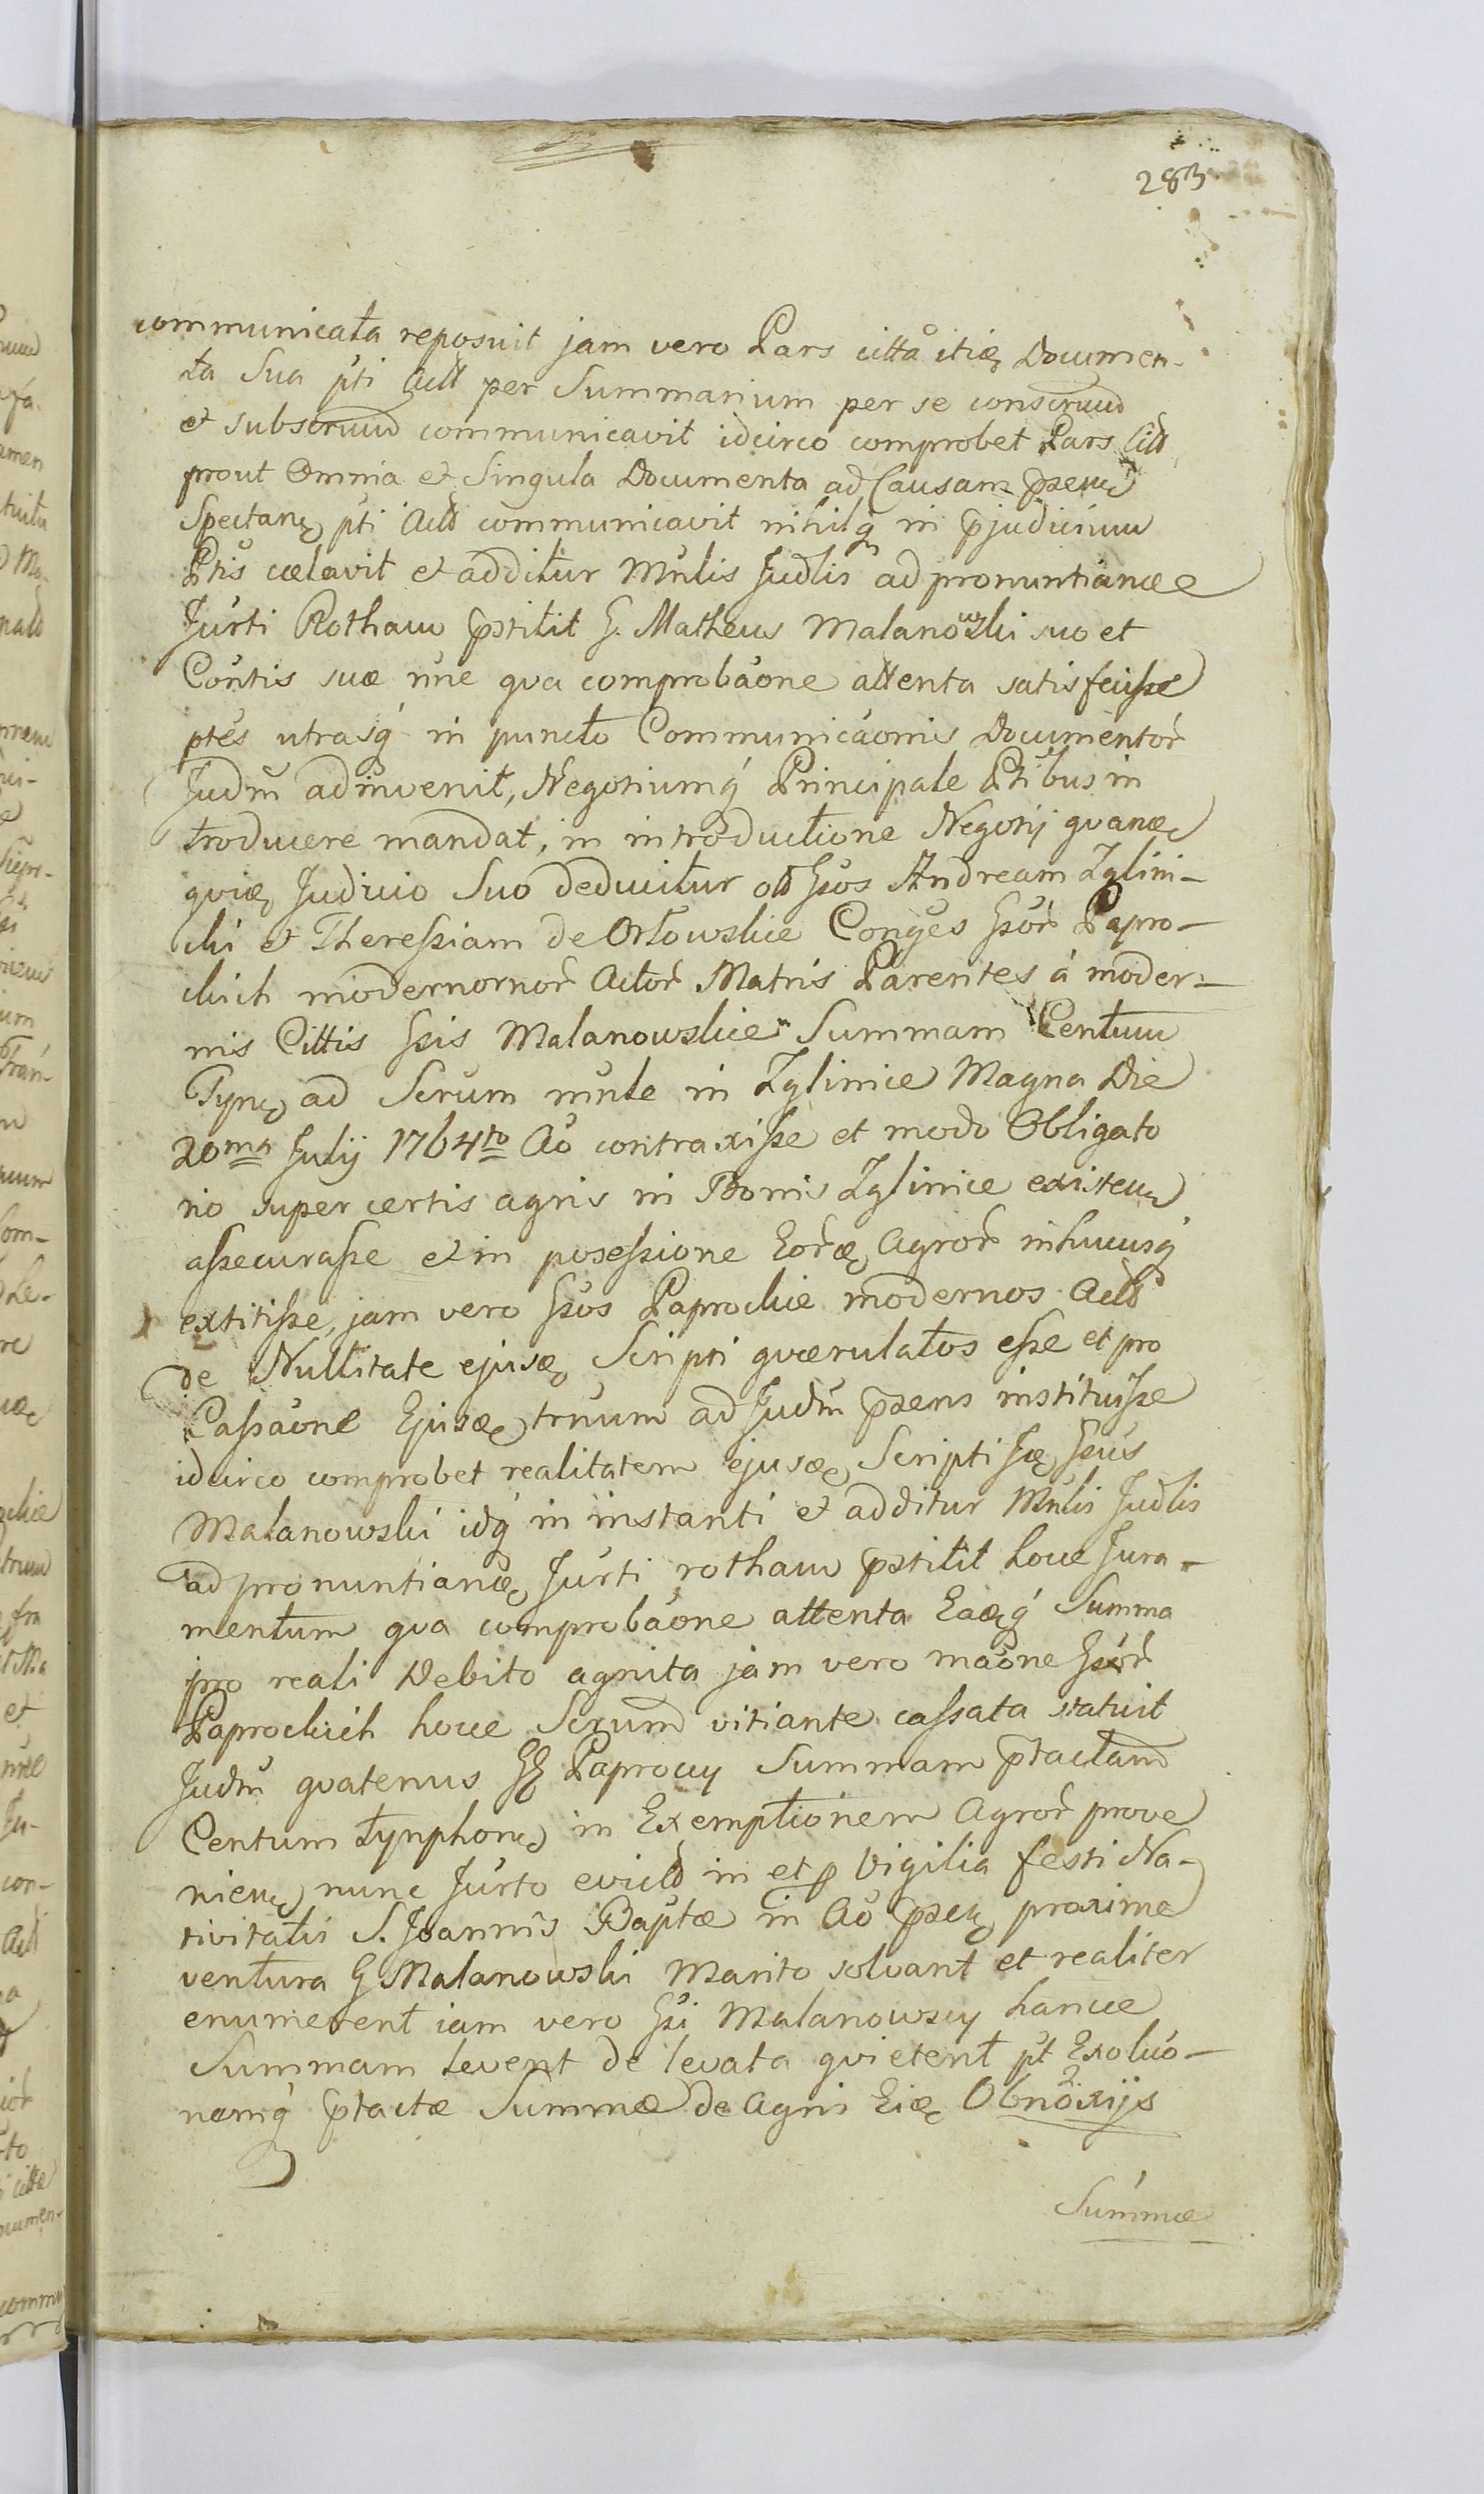 283
communicata reposuit jam vero Pars citta itiæ Documen-
ta Sua pti Act per Summarium per se conscruud
et subscruud communicavit idcirco comprobet Pars Citt
prout Omnia et Singula Documenta ad Causam pzend
Spectanę pti Act communicavit nihilq in pjudicium
Ptis cælavit et additur Mnlis Judlis ad pronuntianæ
Jurti Rotham pstitit G. Matheus Malanowski suo et
Contis suæ nne qva comprobaone attenta satisfecisse
ptes utrasq in puncto Communicaonis Documentor
Judm adinvenit, Negotiumq Principale Ptibus in
troducere mandat, in introductione Negotij qvanæ
qviæ Judicio Suo deducitur ott Gsos Andream Zglini-
cki et Theressiam de Orłowskie Conges Gsor Papro-
ckich modernornor Actor Matris Parentes á moder-
nis Cittis Gsis Malanowskie Summam Centum
Tynę ad Scrum mnle in Zglinice Magna Die
20ma Julij 1764to Ao contraxisse et modo Obligato
rio super certis agris in Bonis Zglinice existenę
assecurasse et in posessione Eoræ Agror inhucusq
extitisse, jam vero Gsos Paprockie modernos Act
de Nullitate ejusæ Scripti qværulatos esse et pro
Cassaone Ejusæ trnum ad Judm pzens instituisse
idcirco comprobet realitatem ejusæ Scripti Jæ Gsus
Malanowski idq in instanti et additur Mnlis Judlis
ad pronuntianæ Jurti rotham pstitit houe Jura-
mentum qva comprobaone attenta Eaæq Summa
pro reali Debito agnita jam vero maone Gsor
Paprockich houe Scrumd vitiante cassata statuit
Judm qvatenus GG Paproccy Summam ptactamd
Centum Tynphonę in Exemptionem Agror prove
nienę nunc Jurto evictt in et p Vigilia festi Na-
tivitatis S. Joannis Baptæ in Ao pzeę proxime
ventura G Malanowski Marito solvant et realiter
enumerent iam vero Gsi Malanowscy hance
Summam levent de levata qvietent pt Exoluo-
nemq ptactæ Summæ de Agris Eiæ Obnoxijs
Summæ